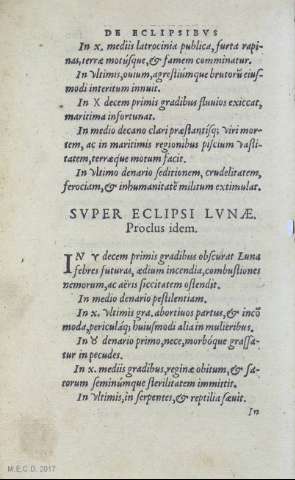 DE ECLIPSIBVS
In x. mediis latrocinia publica, furta rapi-
nas, terræ motúsque, & famem comminatur.
In vltimis, ouium, agrestiumque brutorū eius-
modi interitum innuit.
In ♓ decem primis gradibus fluuios exiccat,
maritima infortunat.
In medio decano clari præstantisq; viri mor-
tem, ac in maritimis regionibus piscium vasti-
tatem, terræque motum facit.
In vltimo denario seditionem, crudelitatem,
ferociam, & inhumanitatē militum extimulat.
SVPER ECLIPSI LVNÆ.
Proclus idem.
IN ♈ decem primis gradibus obscurat Luna
febres futuras, ædium incendia, combustiones
nemorum, ac aëris siccitatem ostendit.
In medio denario pestilentiam.
In x. vltimis gra. abortiuos partus, & incō
moda, periculáq; huiusmodi alia in mulieribus.
In ♉ denario primo, nece, morbóque grassa-
tur in pecudes.
In x. mediis gradibus, reginæ obitum, & sa-
torum seminúmque sterilitatem immittit.
In vltimis, in serpentes, & reptilia sæuit.
In
M.E.C.D. 2017